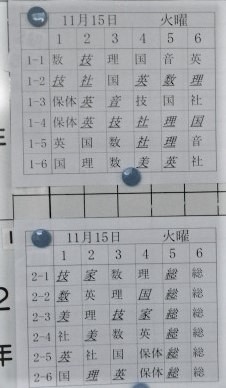 11月15日 火曜
1 2 3 4 5 6
1-1 数 技 理 国 音 英
1-2 技 社 国 英 数 理
1-3 保体 英 音 技 国 社
1-4 保体 英 技 社 理 国
1-5 英 国 数 社 理 音
1-6 国 理 数 美 英 社
年
1
11月15日 火曜
1 2 3 4 5 6
2-1 技 家 数 理 総 総
2-2 数 英 理 国 総 総
2-3 美 理 技 家 総 総
2-4 社 美 数 英 総 総
2-5 英 社 国 保体 総 総
2-6 国 理 英 保体 総 総
2
年